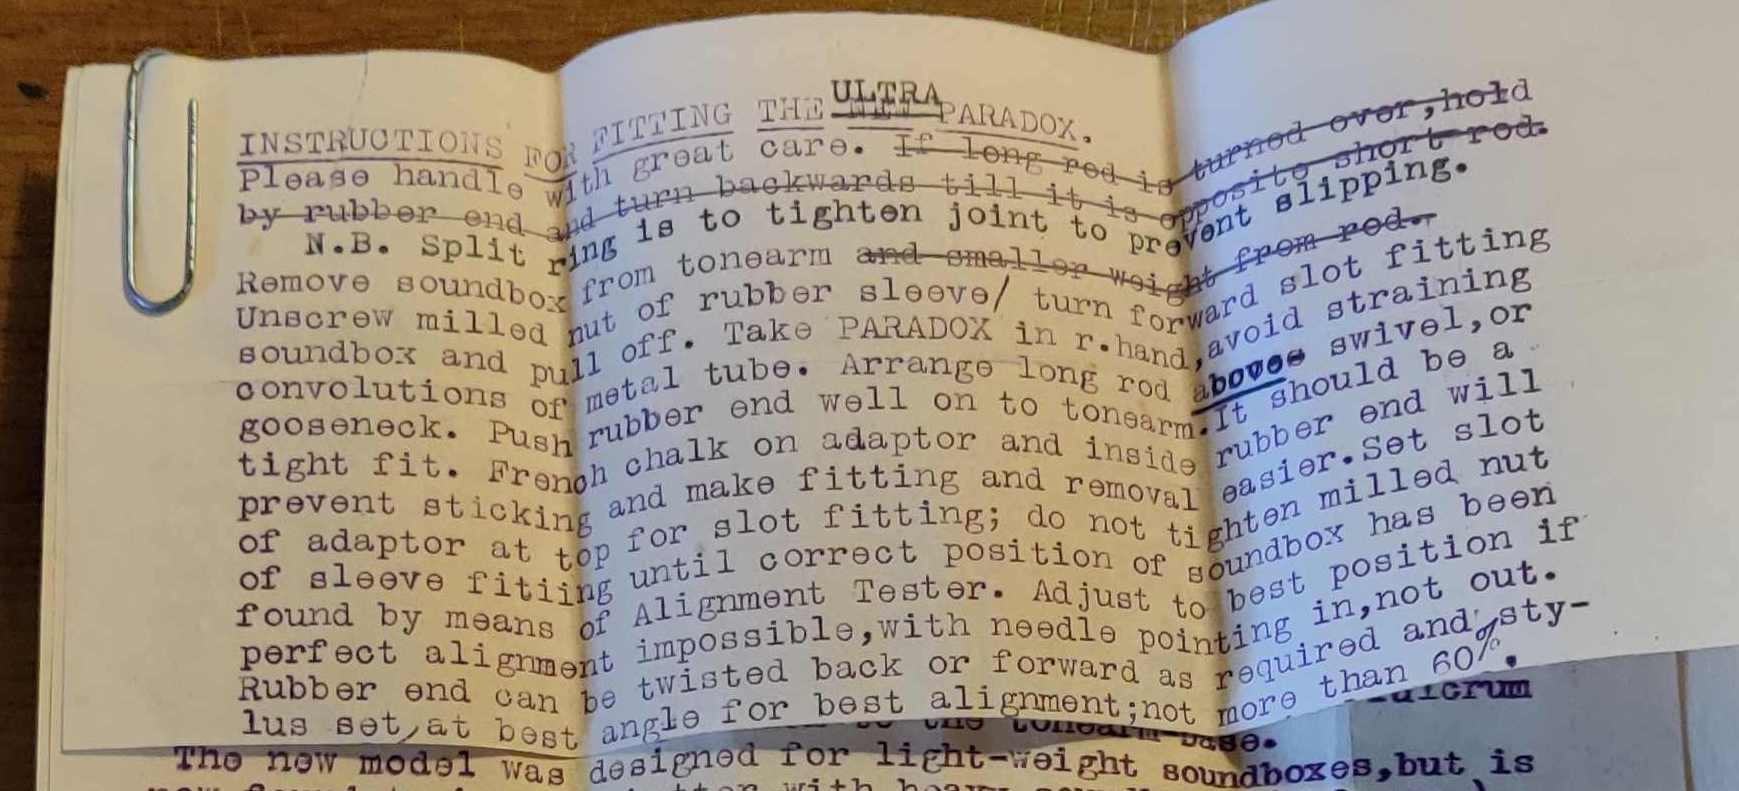 INSTRUCTIONS FOR FITTING THE ULTRA PARADOX.
Please handle with great care. If long rod is turned over,hold
by rubber end and turn backwards till it is opposite short rod.
N.B. Split ring is to tighten joint to prevent slipping.
Remove soundbox from tonearm and smaller weight from rod.
Unscrew milled nut of rubber sleeve/ turn forward slot fitting
soundbox and pull off. Take PARADOX in r.hand,avoid straining
convolutions of metal tube. Arrange long rod above swivel,or
gooseneck. Push rubber end well on to tonearm.It should be a
tight fit. French chalk on adaptor and inside rubber end will
prevent sticking and make fitting and removal easier.Set slot
of adaptor at top for slot fitting; do not tighten milled nut
of sleeve fitiing until correct position of soundbox has been
found by means of Alignment Tester. Adjust to best position if
perfect alignment impossible,with needle pointing in,not out.
Rubber end can be twisted back or forward as required and sty-
lus set,at best angle for best alignment;not more than 60%.
fulcrum
to the tonearm base.
The new model was designed for light-weight soundboxes,but is
with